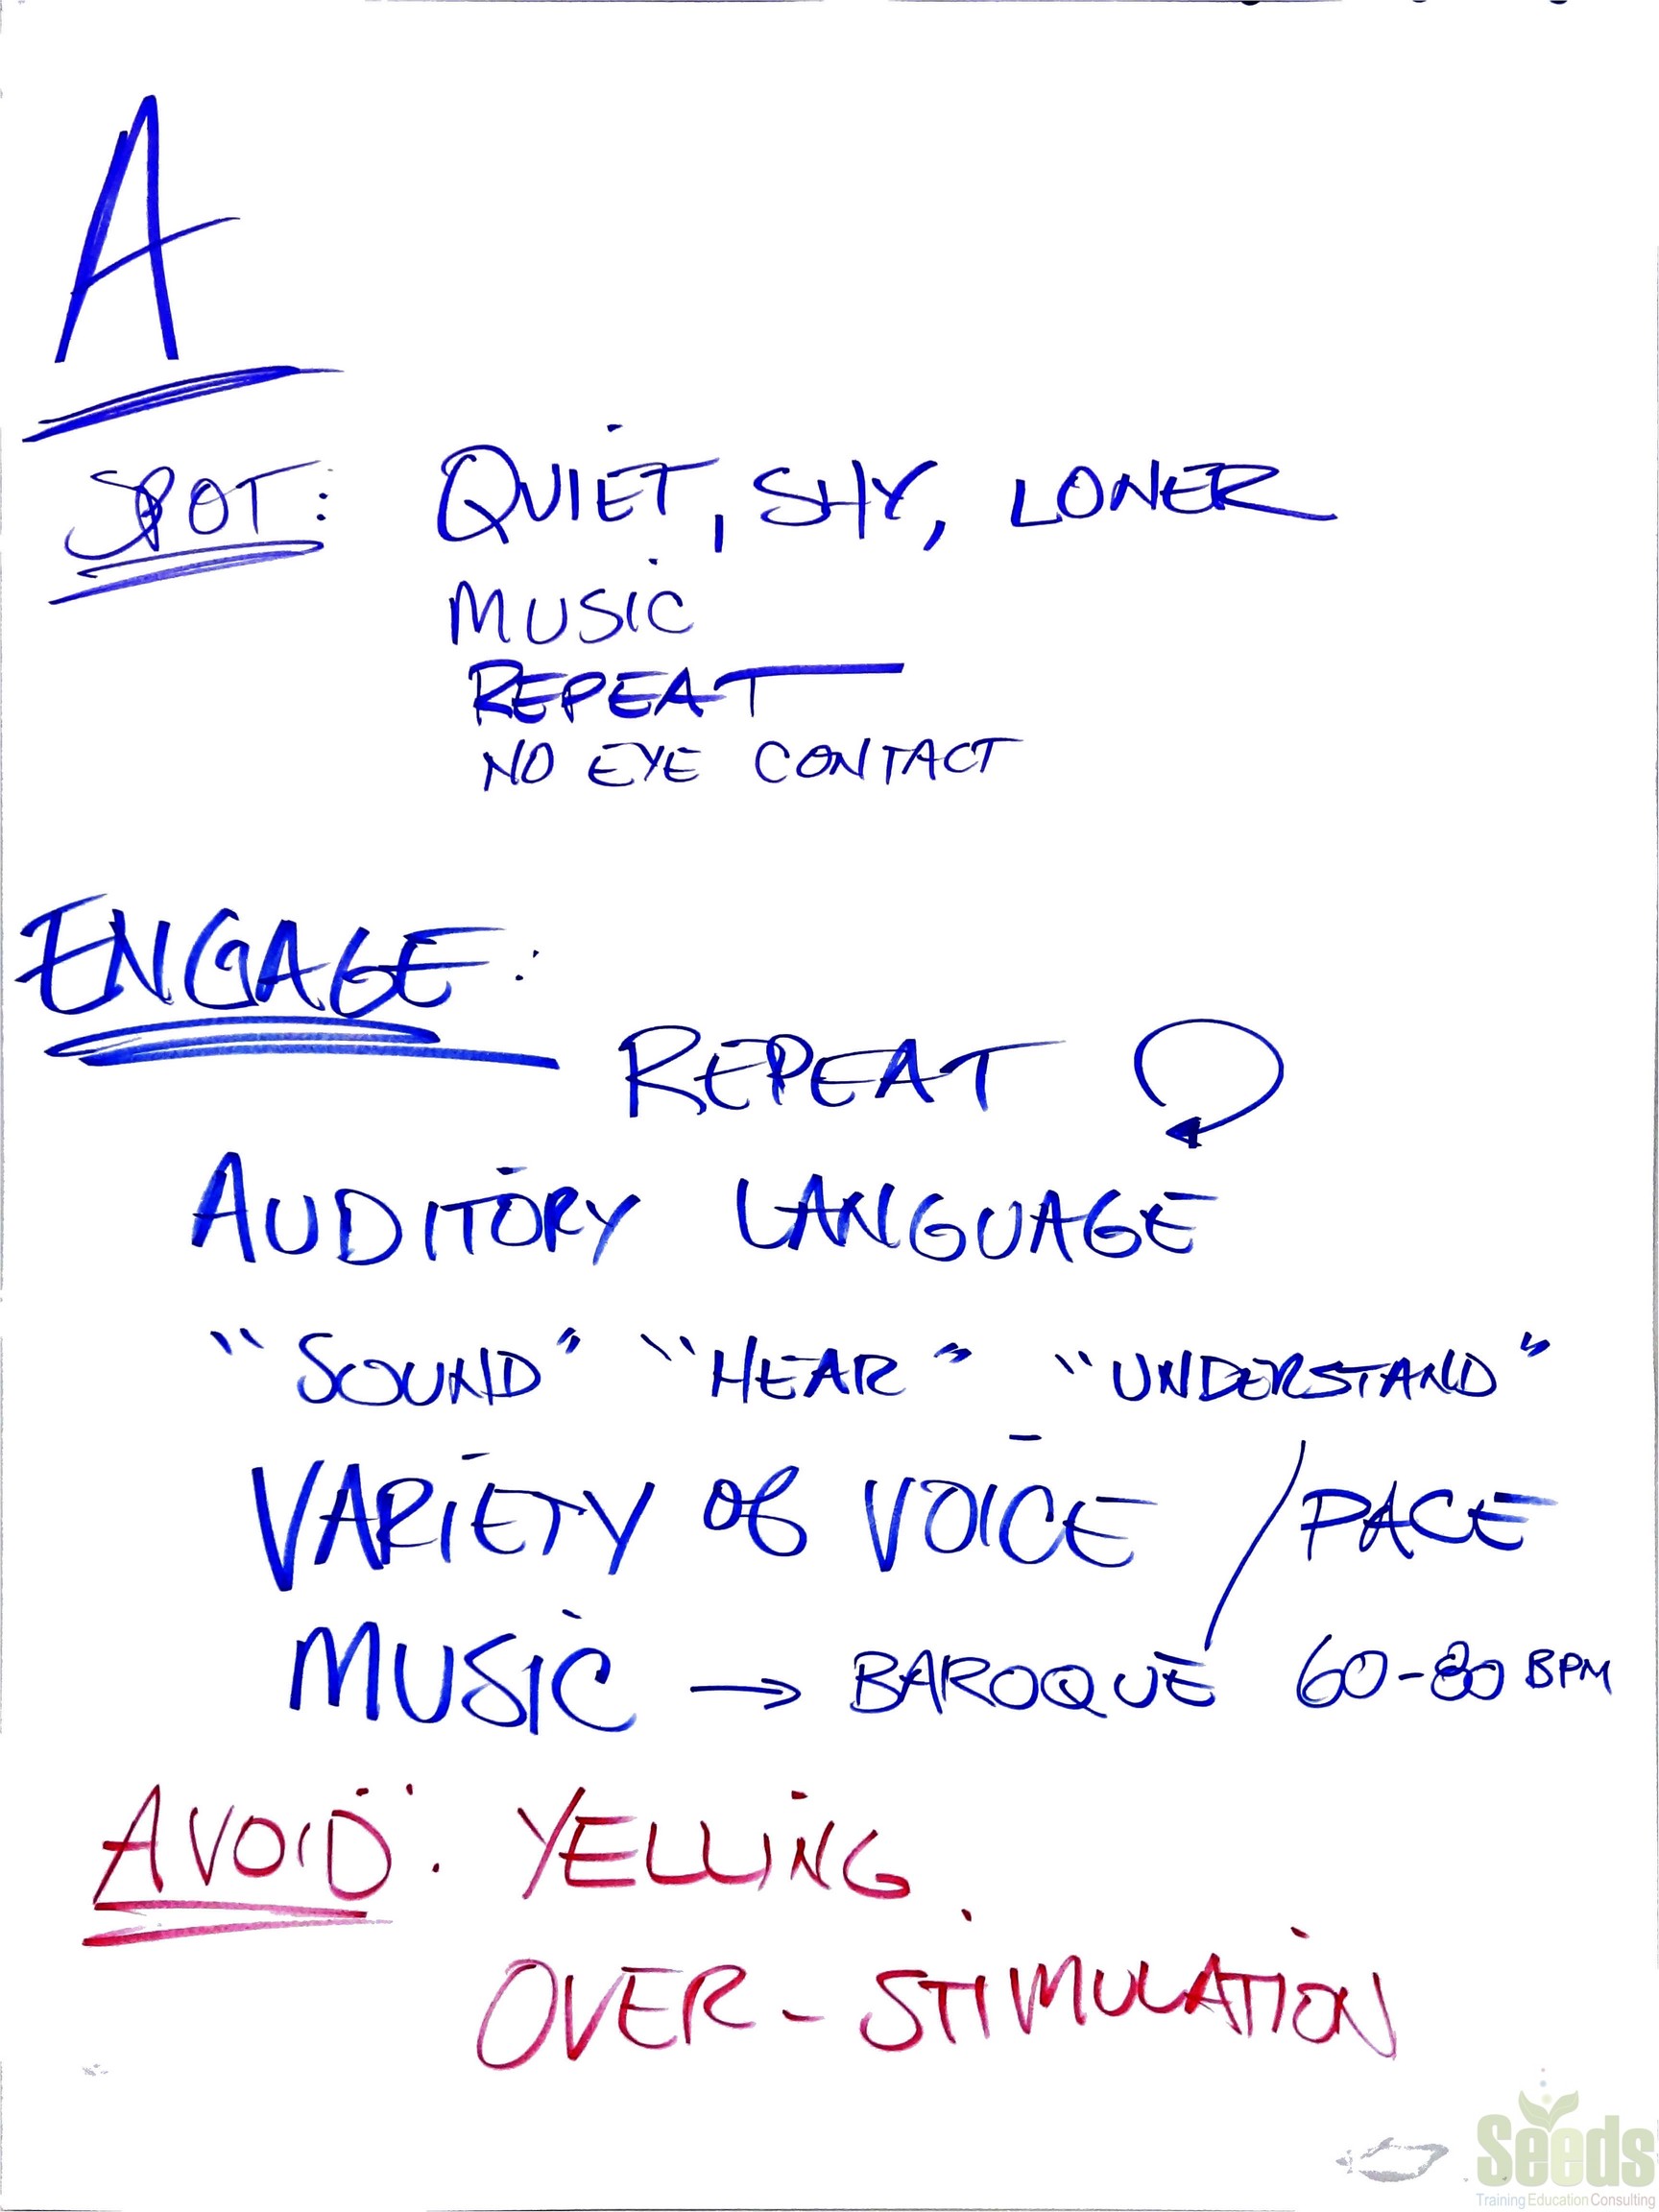 A
SPOT: QUIET, SHY, LONER
MUSIC
REPEAT
NO EYE CONTACT
ENGAGE:
REPEAT
AUDITORY LANGUAGE
"SOUND" "HEAR" "UNDERSTAND"
VARIETY of VOICE / PACE
MUSIC → BAROQUE 60-80 BPM
AVOID: YELLING
OVER-STIMULATION
Seeds
Training Education Consulting